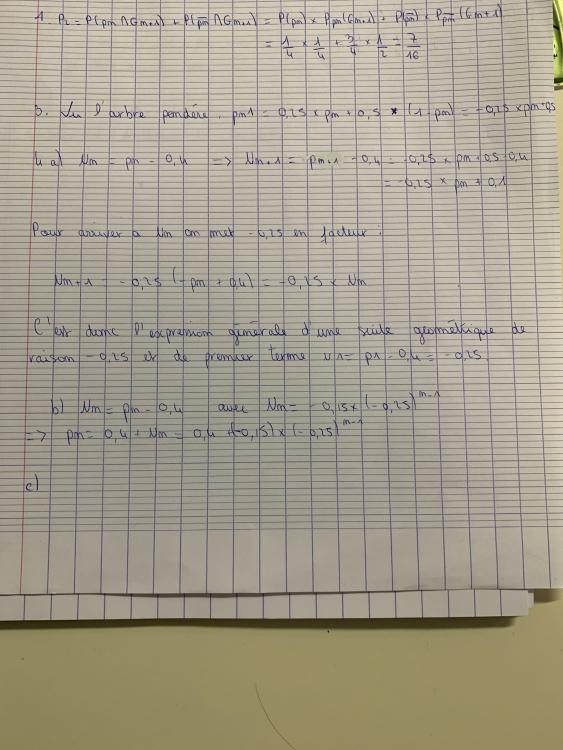 1. P2 = P(pm ∩ Gm+1) + P(p̅m̅ ∩ Gm+1) = P(pm) × Ppm(Gm+1) + P(p̅m̅) × Pp̅m̅(Gm+1)
= 1/4 × 1/4 + 3/4 × 1/2 = 7/16
3. Vu l'arbre pondéré, pm1 = 0,25 × pm + 0,5 * (1 - pm) = -0,25 × pm + 0,5
4 a) Nm = pm - 0,4 => Nm+1 = pm+1 - 0,4 = -0,25 × pm + 0,5 - 0,4
= -0,25 × pm + 0,1
Pour arriver a Nm on met -0,25 en facteur :
Nm+1 = -0,25 (-pm + 0,4) = -0,25 × Nm
C'est donc l'expression générale d'une suite géométrique de
raison -0,25 et de premier terme v1 = p1 - 0,4 = -0,25
b) Nm = pm - 0,4 avec Nm = -0,15 × (-0,25)^m-1
=> pm = 0,4 + Nm = 0,4 + (-0,15) × (-0,25)^m-1
c)